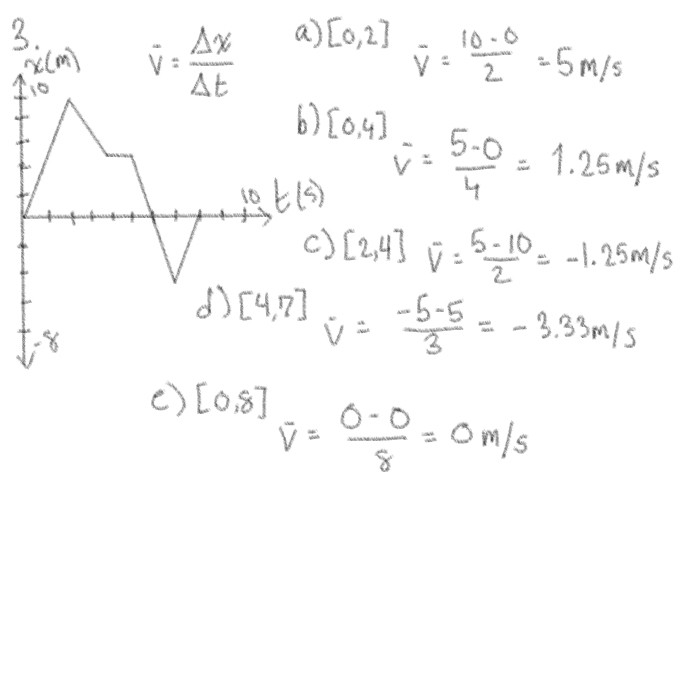 3.
x(m)
10
-8
10 t(s)
v̄ = Δx/Δt
a) [0,2] v̄ = (10-0)/2 = 5 m/s
b) [0,4] v̄ = (5-0)/4 = 1.25 m/s
c) [2,4] v̄ = (5-10)/2 = -1.25 m/s
d) [4,7] v̄ = (-5-5)/3 = -3.33 m/s
e) [0,8] v̄ = (0-0)/8 = 0 m/s